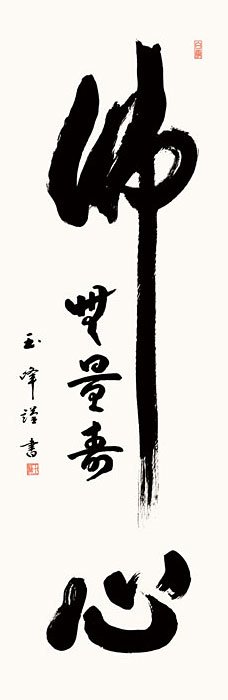 佛心
無量寿
玉峰謹書